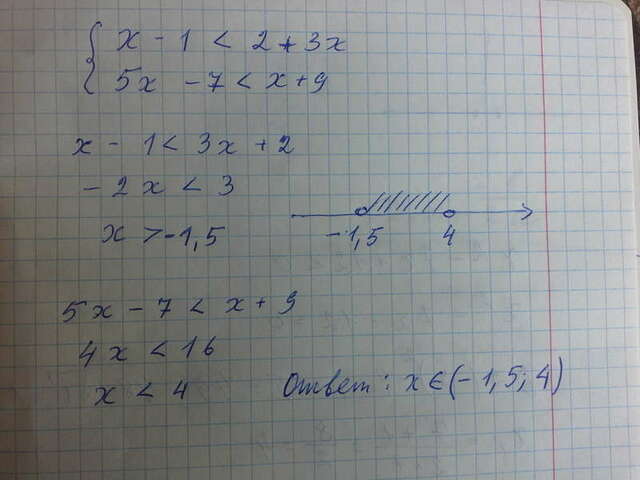 { x - 1 < 2 + 3x
5x - 7 < x + 9
x - 1 < 3x + 2
- 2x < 3
x > -1,5
-1,5 4
5x - 7 < x + 9
4x < 16
x < 4
Ответ: x ∈ (-1,5; 4)